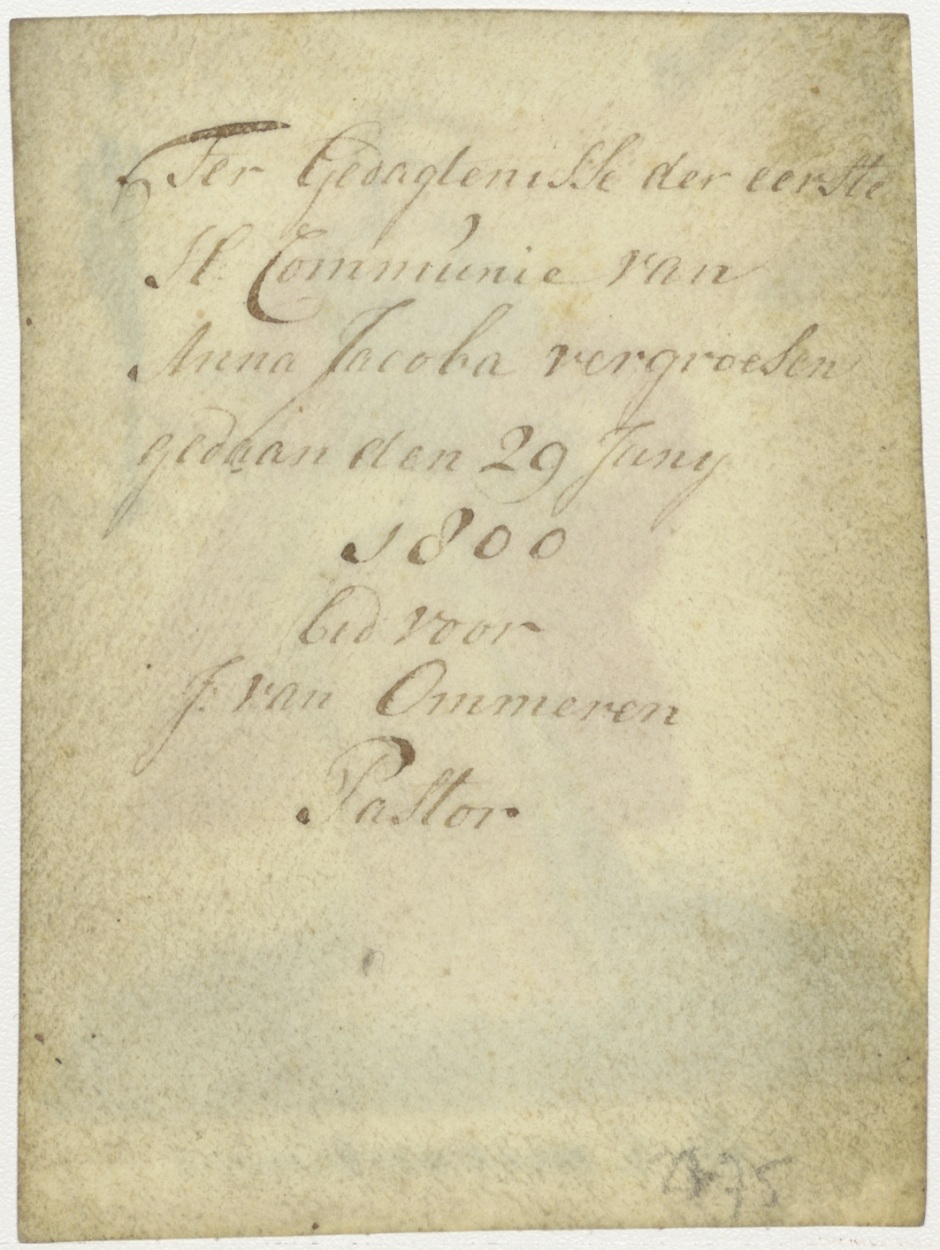 Ter Gedagtenisse der eerste
H. Communie van
Anna Jacoba vergroesen
gedaan den 29 Juny
1800
bid voor
J: van Ommeren
Pastor